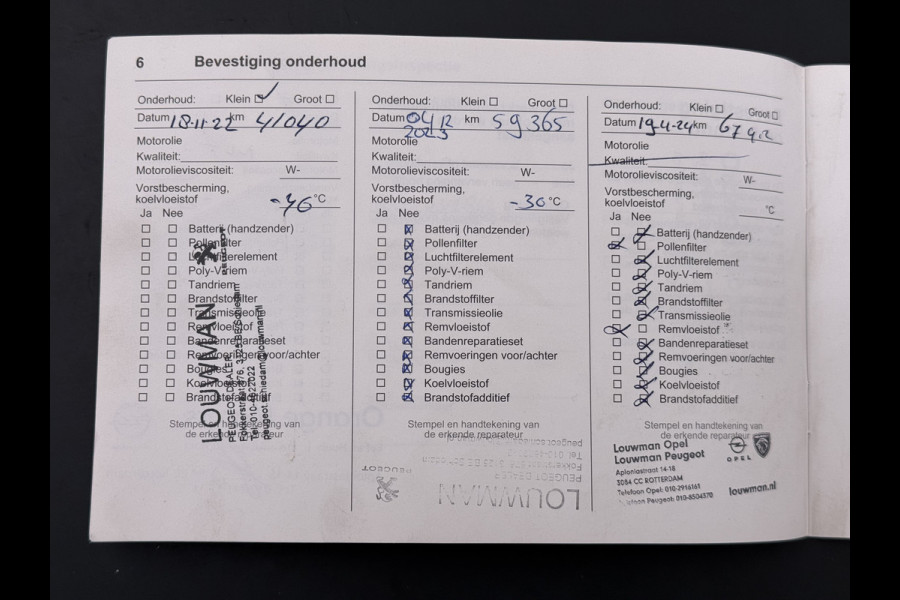 6 Bevestiging onderhoud
Onderhoud: Klein Groot
Datum 18-11-22 km 41040
Motorolie
Kwaliteit:
Motorolieviscositeit: W-
Vorstbescherming,
koelvloeistof -46 °C
Ja Nee
Batterij (handzender)
Pollenfilter
Luchtfilterelement
Poly-V-riem
Tandriem
Brandstoffilter
Transmissieolie
Remvloeistof
Bandenreparatieset
Remvoeringen voor/achter
Bougies
Koelvloeistof
Brandstofadditief
Stempel en handtekening van
de erkende reparateur
LOUWMAN
PEUGEOT DEALER
PEUGEOT
Onderhoud: Klein Groot
Datum 04 12 km 59365
2023
Motorolie
Kwaliteit:
Motorolieviscositeit: W-
Vorstbescherming,
koelvloeistof -30 °C
Ja Nee
Batterij (handzender)
Pollenfilter
Luchtfilterelement
Poly-V-riem
Tandriem
Brandstoffilter
Transmissieolie
Remvloeistof
Bandenreparatieset
Remvoeringen voor/achter
Bougies
Koelvloeistof
Brandstofadditief
Stempel en handtekening van
de erkende reparateur
PEUGEOT
LOUWMAN
Onderhoud: Klein Groot
Datum 19-4-24 km
Motorolie
Kwaliteit:
Motorolieviscositeit: W-
Vorstbescherming,
koelvloeistof °C
Ja Nee
Batterij (handzender)
Pollenfilter
Luchtfilterelement
Poly-V-riem
Tandriem
Brandstoffilter
Transmissieolie
Remvloeistof
Bandenreparatieset
Remvoeringen voor/achter
Bougies
Koelvloeistof
Brandstofadditief
Stempel en handtekening van
de erkende reparateur
Louwman Opel
Louwman Peugeot
OPEL
Aploniastraat 14-18
3084 CC ROTTERDAM
Telefoon Opel: 010-2916161
Peugeot: 010-8504370
louwman.nl